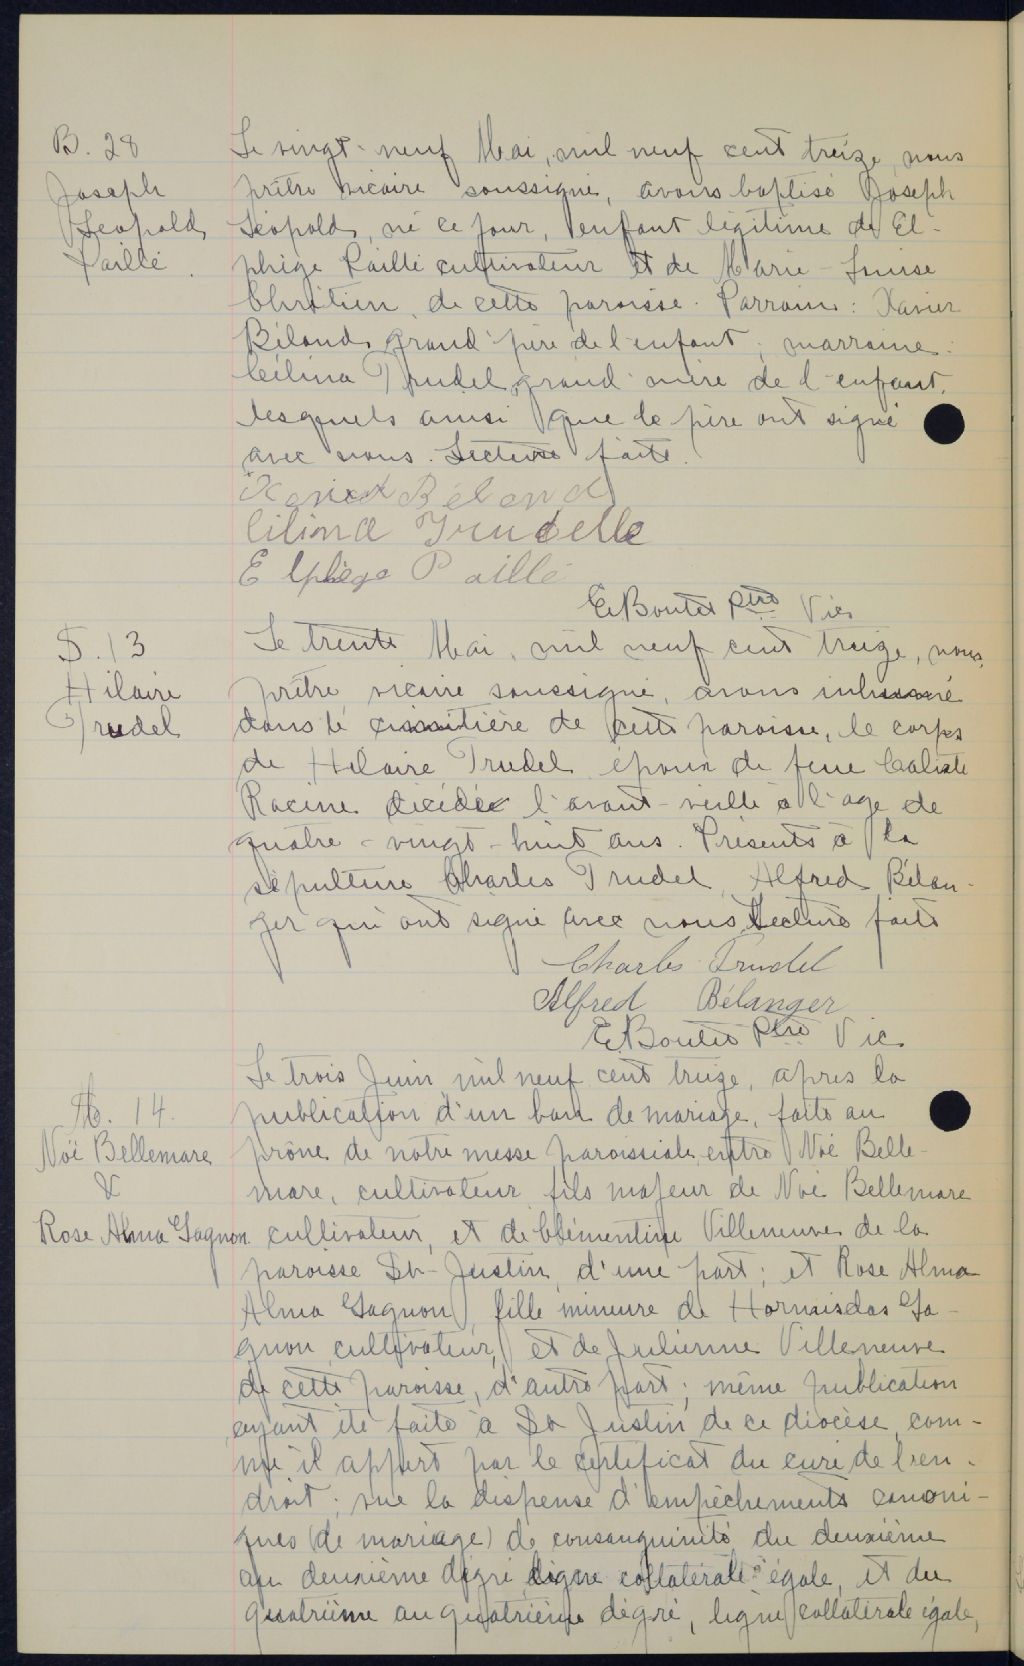 B. 28
Joseph
Léopold
Paillé.
Le vingt-neuf Mai, mil neuf cent treize, nous
prêtre vicaire soussigné, avons baptisé Joseph
Léopold, né ce jour, enfant légitime de El-
phège Paillé cultivateur et de Marie-Louise
Chrétien, de cette paroisse. Parrain: Xavier
Béland grand'père de l'enfant; marraine:
Célina Trudel grand'mère de l'enfant,
lesquels ainsi que le père ont signé
avec nous. Lecture faite.
Xavier Béland
Cilina Trudelle
Elphège Paillé
E. Boutet Ptre Vic
S. 13
Hilaire
Trudel
Le trente Mai, mil neuf cent treize, nous,
prêtre vicaire soussigné, avons inhumé
dans le cimitière de cette paroisse, le corps
de Hilaire Trudel époux de feue Calixte
Racine décédée l'avant-veille à l'age de
quatre-vingt-huit ans. Présents à la
sépulture Charles Trudel, Alfred Bélan-
ger qui ont signé avec nous. Lecture faite
Charles Trudel
Alfred Bélanger
E. Boutet Ptre Vic
M. 14.
Noé Bellemare
&
Rose Alma Gagnon
Le trois Juin mil neuf cent treize, après la
publication d'un ban de mariage, faite au
prône de notre messe paroissiale entre Noé Belle-
mare, cultivateur fils majeur de Noé Bellemare
cultivateur, et de Clémentine Villeneuve de la
paroisse St-Justin, d'une part; et Rose Alma
Alma Gagnon, fille mineure de Hormisdas Ga-
gnon cultivateur, et de Julienne Villeneuve
de cette paroisse, d'autre part; même publication
ayant été faite à St Justin de ce diocèse com-
me il appert par le certificat du curé de l'en-
droit; vue la dispense d'empêchements canoni-
ques (de mariage) de consanguinité du deuxième
au deuxième degré ligne collatérale égale, et du
quatrième au quatrième degré, ligne collatérale égale,